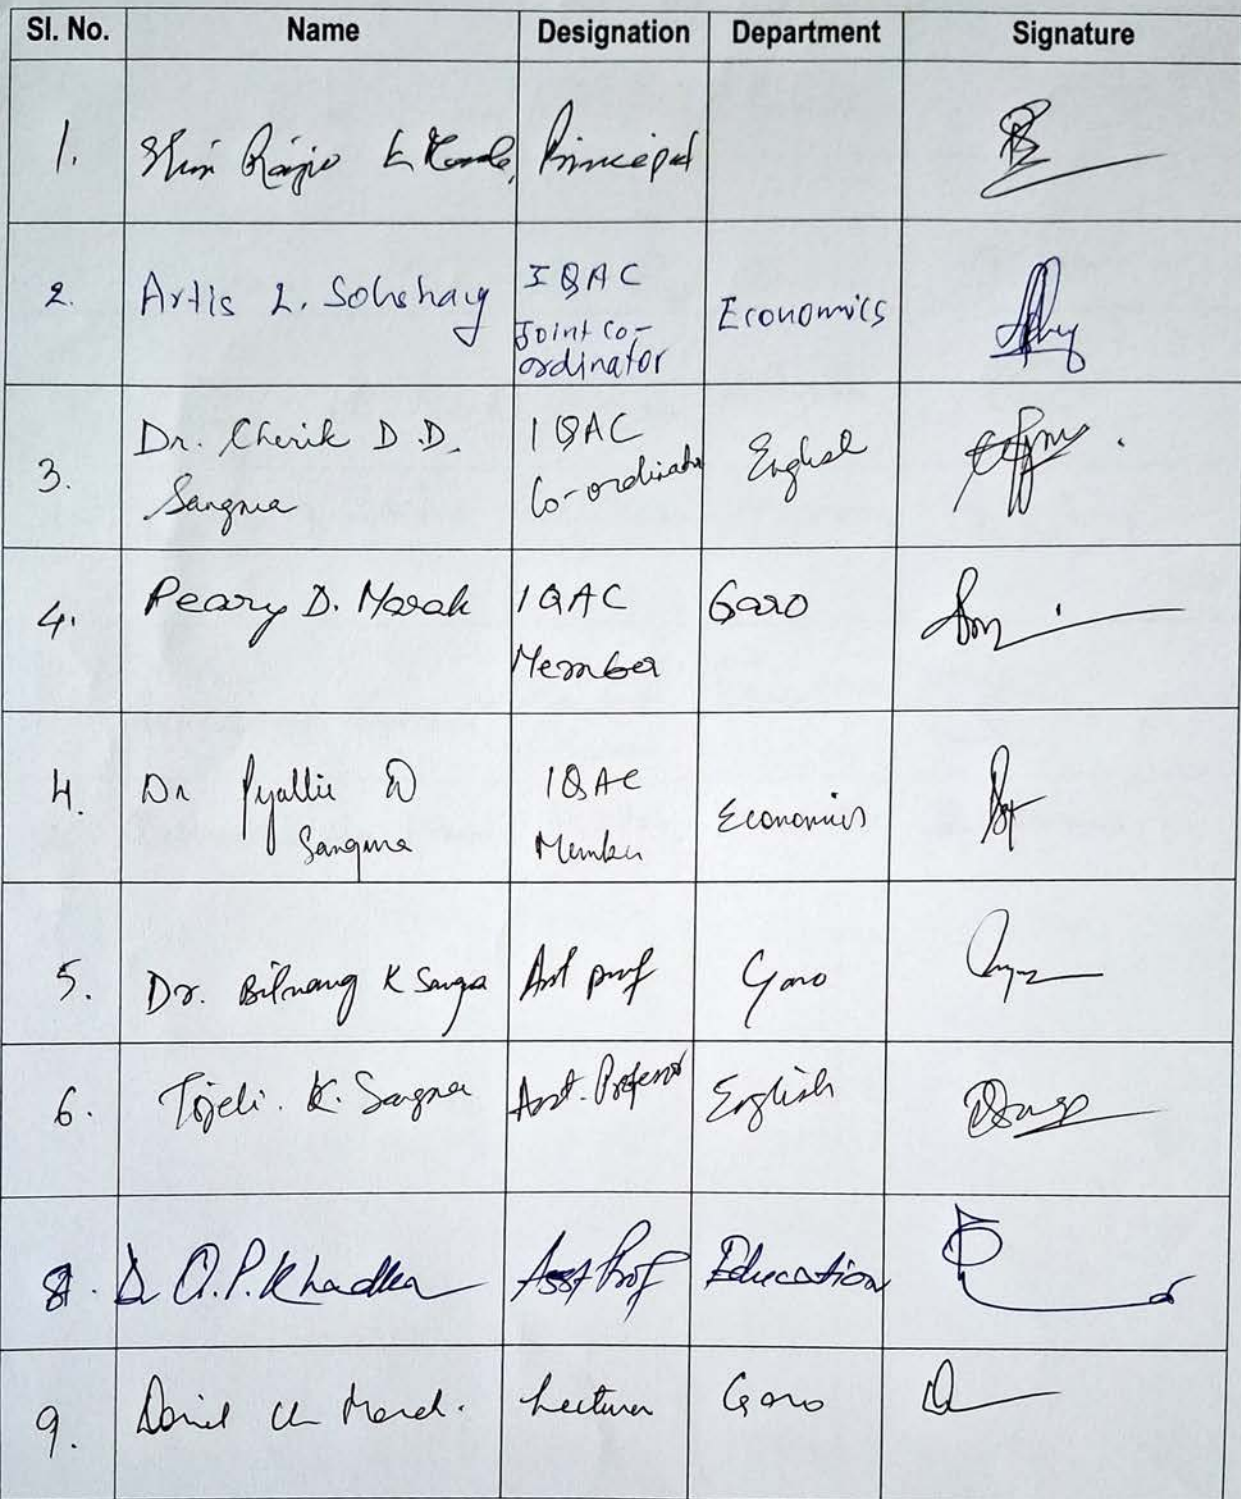 Sl. No. Name Designation Department Signature
1. Principal
2. Artis L. Sohshang IQAC Joint Co-ordinator Economics
3. Dr. Cherik D.D. Sangma IQAC Co-ordinator English
4. Peary D. Marak IQAC Member Garo
4. Dr Pyallie D Sangma IQAC Member Economics
5. Dr. K Asst prof Garo
6. K. Sangma Asst. Professor English
8. Dr O.P. Khadka Asst Prof Education
9. Lecturer Garo